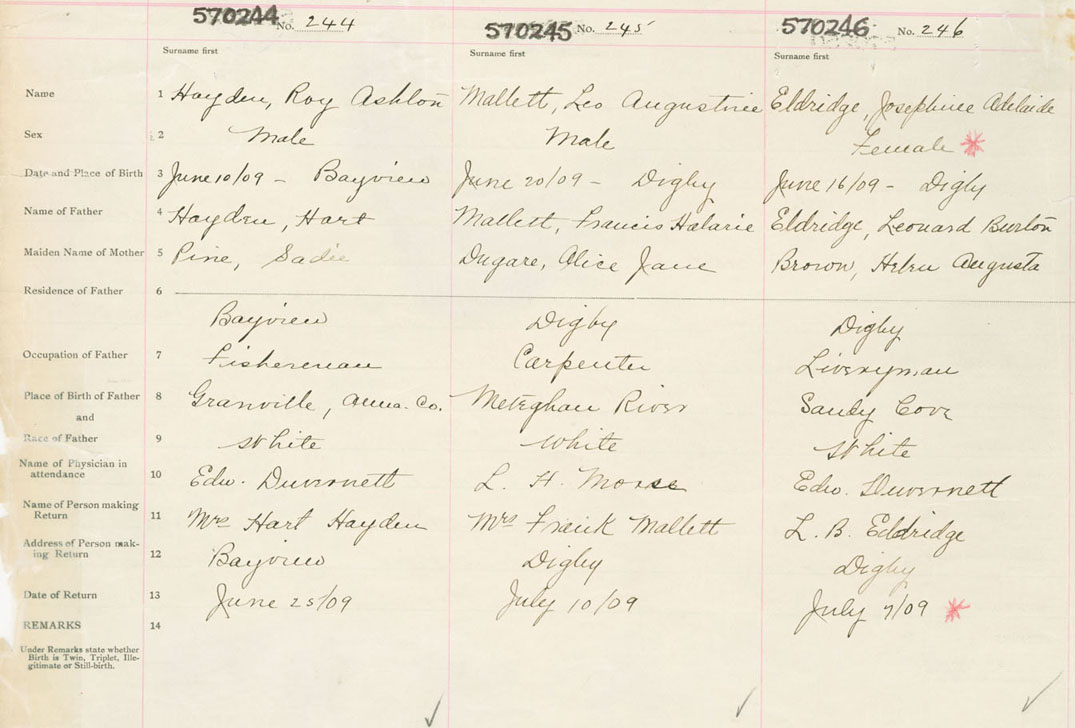 570244 No. 244 570245 No. 245 570246 No. 246
Surname first Surname first Surname first
Name 1 Hayden, Roy Ashton Mallett, Leo Augustine Eldridge, Josephine Adelaide
Sex 2 Male Male Female *
Date and Place of Birth 3 June 10/09 - Bayview June 20/09 - Digby June 16/09 - Digby
Name of Father 4 Hayden, Hart Mallett, Francis Halarie Eldridge, Leonard Burton
Maiden Name of Mother 5 Pine, Sadie Dugare, Alice Jane Brown, Helen Augusta
Residence of Father 6
Bayview Digby Digby
Occupation of Father 7 Fisherman Carpenter Liveryman
Place of Birth of Father 8 Granville, Anna. Co. Meteghan River Sandy Cove
and
Race of Father 9 White White White
Name of Physician in
attendance 10 Edw. Duvernett L. H. Morse Edw. Duvernett
Name of Person making
Return 11 Mrs Hart Hayden Mrs Frank Mallett L. B. Eldridge
Address of Person mak-
ing Return 12 Bayview Digby Digby
Date of Return 13 June 25/09 July 10/09 July 7/09 *
REMARKS 14
Under Remarks state whether
Birth is Twin, Triplet, Ille-
gitimate or Still-birth.